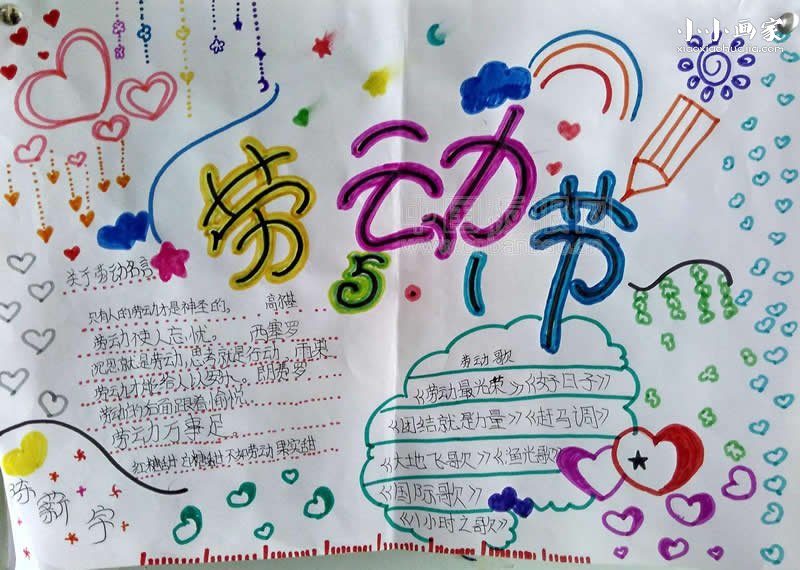 小小画家
xiaoxiaohuajia.com
劳动节
5.1
关于劳动名言
只有人的劳动才是神圣的。 高尔基
劳动使人忘忧。 西塞罗
沉思就是劳动,思考就是行动。雨果
劳动才能给人以安
劳动的后面跟着愉悦
劳动万事足
红糖甜 白糖甜 不如劳动果实甜
劳动歌
《劳动最光荣》《好日子》
《团结就是力量》《赶马调》
《大地飞歌》《渔光歌》
《国际歌》
《八小时之歌》